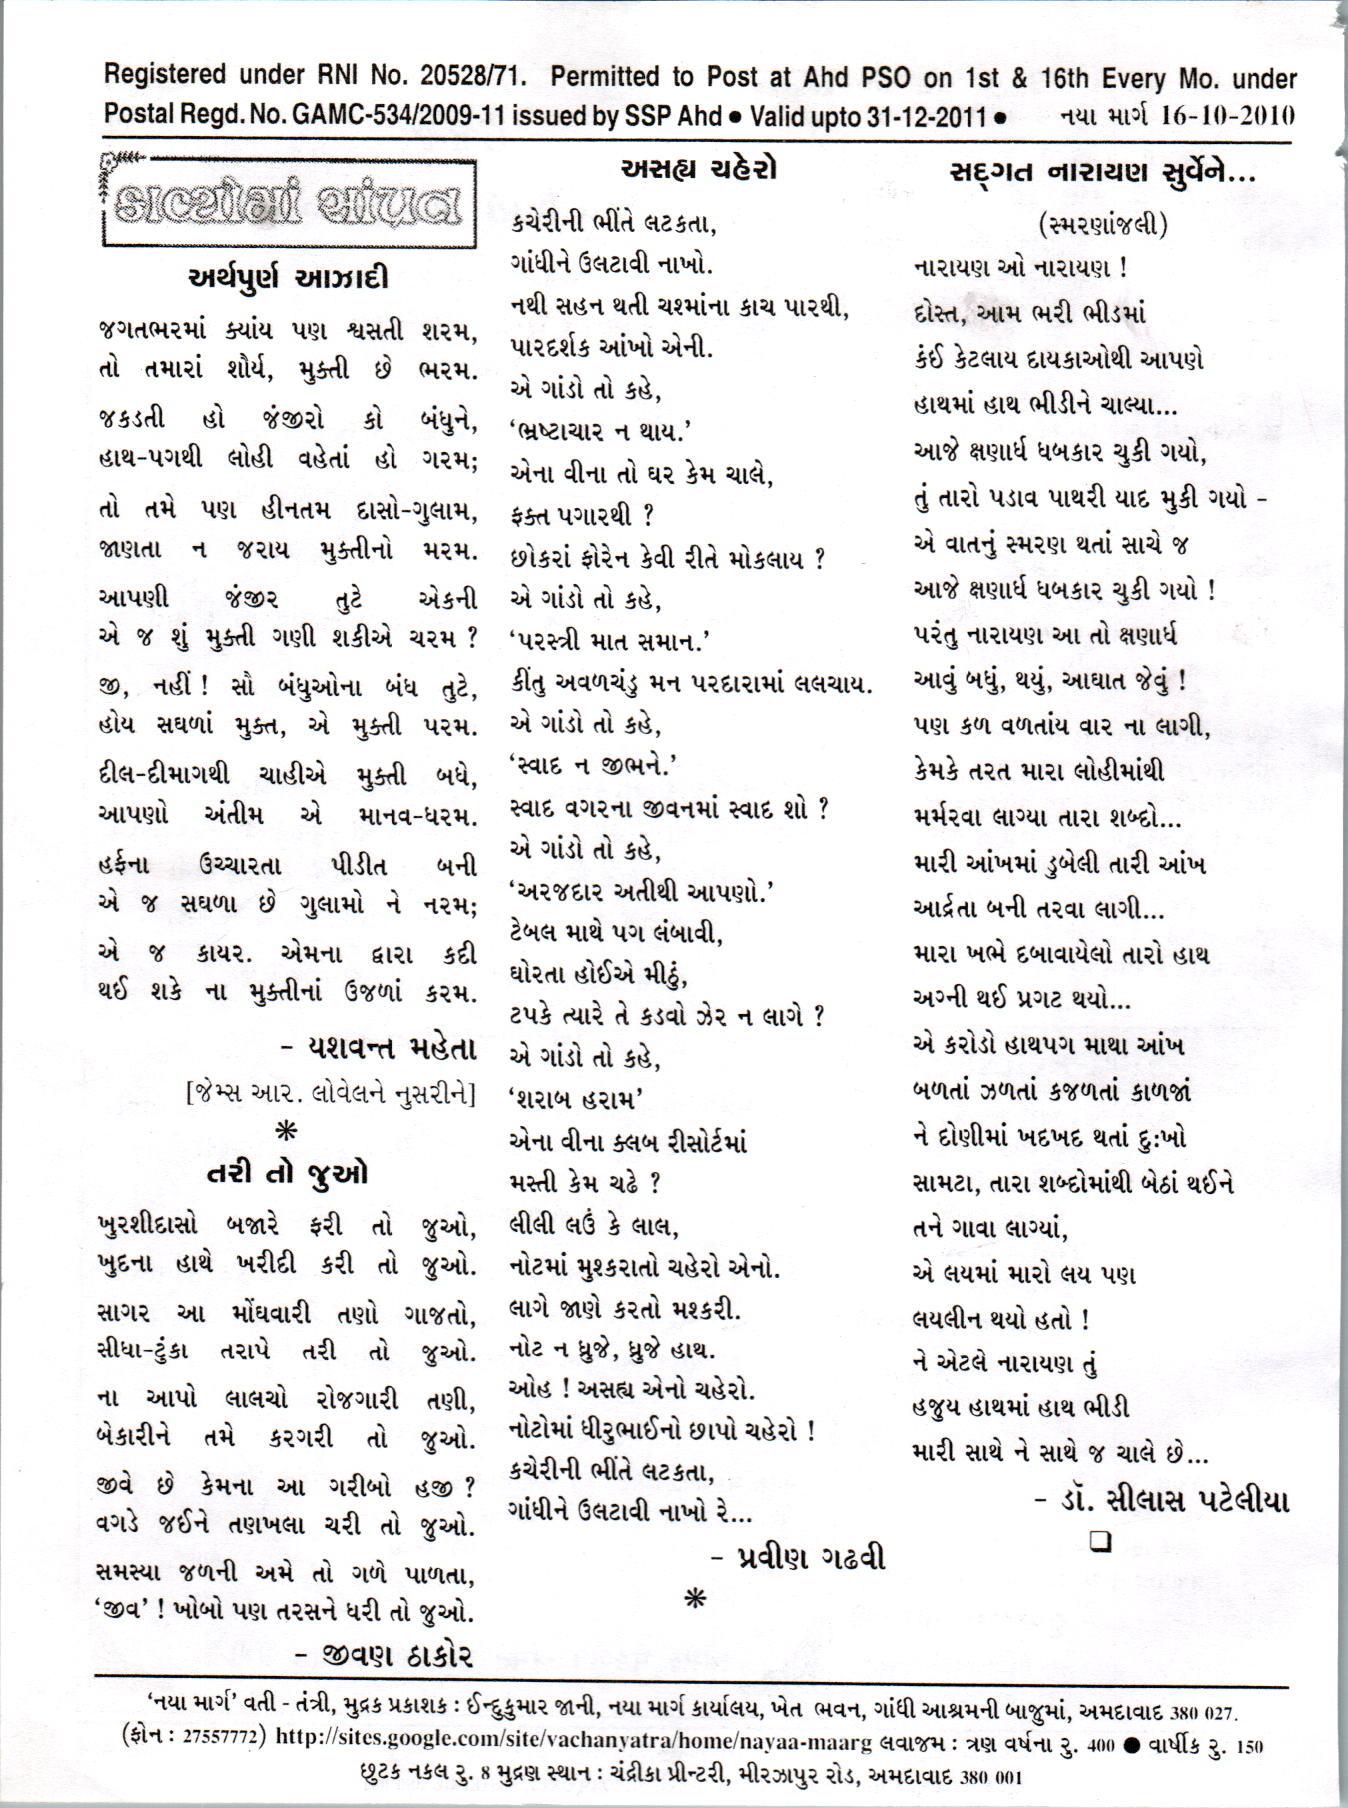 Registered under RNI No. 20528/71. Permitted to Post at Ahd PSO on 1st & 16th Every Mo. under
Postal Regd. No. GAMC-534/2009-11 issued by SSP Ahd ● Valid upto 31-12-2011 ● નયા માર્ગ 16-10-2010
કાવ્યોમાં સાંપ્રત
અર્થપુર્ણ આઝાદી
જગતભરમાં ક્યાંય પણ શ્વસતી શરમ,
તો તમારાં શૌર્ય, મુક્તી છે ભરમ.
જકડતી હો જંજીરો કો બંધુને,
હાથ-પગથી લોહી વહેતાં હો ગરમ;
તો તમે પણ હીનતમ દાસો-ગુલામ,
જાણતા ન જરાય મુક્તીનો મરમ.
આપણી જંજીર તુટે એકની
એ જ શું મુક્તી ગણી શકીએ ચરમ ?
જી, નહીં ! સૌ બંધુઓના બંધ તુટે,
હોય સઘળાં મુક્ત, એ મુક્તી પરમ.
દીલ-દીમાગથી ચાહીએ મુક્તી બધે,
આપણો અંતીમ એ માનવ-ધરમ.
હર્ફના ઉચ્ચારતા પીડીત બની
એ જ સઘળા છે ગુલામો ને નરમ;
એ જ કાયર. એમના દ્વારા કદી
થઈ શકે ના મુક્તીનાં ઉજળાં કરમ.
- યશવન્ત મહેતા
[જેમ્સ આર. લોવેલને નુસરીને]
*
તરી તો જુઓ
ખુરશીદાસો બજારે ફરી તો જુઓ,
ખુદના હાથે ખરીદી કરી તો જુઓ.
સાગર આ મોંઘવારી તણો ગાજતો,
સીધા-ટુંકા તરાપે તરી તો જુઓ.
ના આપો લાલચો રોજગારી તણી,
બેકારીને તમે કરગરી તો જુઓ.
જીવે છે કેમના આ ગરીબો હજી ?
વગડે જઈને તણખલા ચરી તો જુઓ.
સમસ્યા જળની અમે તો ગળે પાળતા,
‘જીવ’ ! ખોબો પણ તરસને ધરી તો જુઓ.
- જીવણ ઠાકોર
અસહ્ય ચહેરો
કચેરીની ભીંતે લટકતા,
ગાંધીને ઉલટાવી નાખો.
નથી સહન થતી ચશ્માંના કાચ પારથી,
પારદર્શક આંખો એની.
એ ગાંડો તો કહે,
‘ભ્રષ્ટાચાર ન થાય.’
એના વીના તો ઘર કેમ ચાલે,
ફક્ત પગારથી ?
છોકરાં ફોરેન કેવી રીતે મોકલાય ?
એ ગાંડો તો કહે,
‘પરસ્ત્રી માત સમાન.’
કીંતુ અવળચંડુ મન પરદારામાં લલચાય.
એ ગાંડો તો કહે,
‘સ્વાદ ન જીભને.’
સ્વાદ વગરના જીવનમાં સ્વાદ શો ?
એ ગાંડો તો કહે,
‘અરજદાર અતીથી આપણો.’
ટેબલ માથે પગ લંબાવી,
ઘોરતા હોઈએ મીઠું,
ટપકે ત્યારે તે કડવો ઝેર ન લાગે ?
એ ગાંડો તો કહે,
‘શરાબ હરામ’
એના વીના ક્લબ રીસોર્ટમાં
મસ્તી કેમ ચઢે ?
લીલી લઉં કે લાલ,
નોટમાં મુશ્કરાતો ચહેરો એનો.
લાગે જાણે કરતો મશ્કરી.
નોટ ન ધ્રુજે, ધ્રુજે હાથ.
ઓહ ! અસહ્ય એનો ચહેરો.
નોટોમાં ધીરુભાઈનો છાપો ચહેરો !
કચેરીની ભીંતે લટકતા,
ગાંધીને ઉલટાવી નાખો રે...
- પ્રવીણ ગઢવી
*
સદ્ગત નારાયણ સુર્વેને...
(સ્મરણાંજલી)
નારાયણ ઓ નારાયણ !
દોસ્ત, આમ ભરી ભીડમાં
કંઈ કેટલાય દાયકાઓથી આપણે
હાથમાં હાથ ભીડીને ચાલ્યા...
આજે ક્ષણાર્ધ ધબકાર ચુકી ગયો,
તું તારો પડાવ પાથરી યાદ મુકી ગયો -
એ વાતનું સ્મરણ થતાં સાચે જ
આજે ક્ષણાર્ધ ધબકાર ચુકી ગયો !
પરંતુ નારાયણ આ તો ક્ષણાર્ધ
આવું બધું, થયું, આઘાત જેવું !
પણ કળ વળતાંય વાર ના લાગી,
કેમકે તરત મારા લોહીમાંથી
મર્મરવા લાગ્યા તારા શબ્દો...
મારી આંખમાં ડુબેલી તારી આંખ
આર્દ્રતા બની તરવા લાગી...
મારા ખભે દબાવાયેલો તારો હાથ
અગ્ની થઈ પ્રગટ થયો...
એ કરોડો હાથપગ માથા આંખ
બળતાં ઝળતાં કજળતાં કાળજાં
ને દોણીમાં ખદખદ થતાં દુઃખો
સામટા, તારા શબ્દોમાંથી બેઠાં થઈને
તને ગાવા લાગ્યાં,
એ લયમાં મારો લય પણ
લયલીન થયો હતો !
ને એટલે નારાયણ તું
હજુય હાથમાં હાથ ભીડી
મારી સાથે ને સાથે જ ચાલે છે...
- ડૉ. સીલાસ પટેલીયા
‘નયા માર્ગ’ વતી - તંત્રી, મુદ્રક પ્રકાશક : ઈન્દુકુમાર જાની, નયા માર્ગ કાર્યાલય, ખેત ભવન, ગાંધી આશ્રમની બાજુમાં, અમદાવાદ 380 027.
(ફોન : 27557772) http://sites.google.com/site/vachanyatra/home/nayaa-maarg લવાજમ : ત્રણ વર્ષના રુ. 400 ● વાર્ષીક રુ. 150
છુટક નકલ રુ. 8 મુદ્રણ સ્થાન : ચંદ્રીકા પ્રીન્ટરી, મીરઝાપુર રોડ, અમદાવાદ 380 001